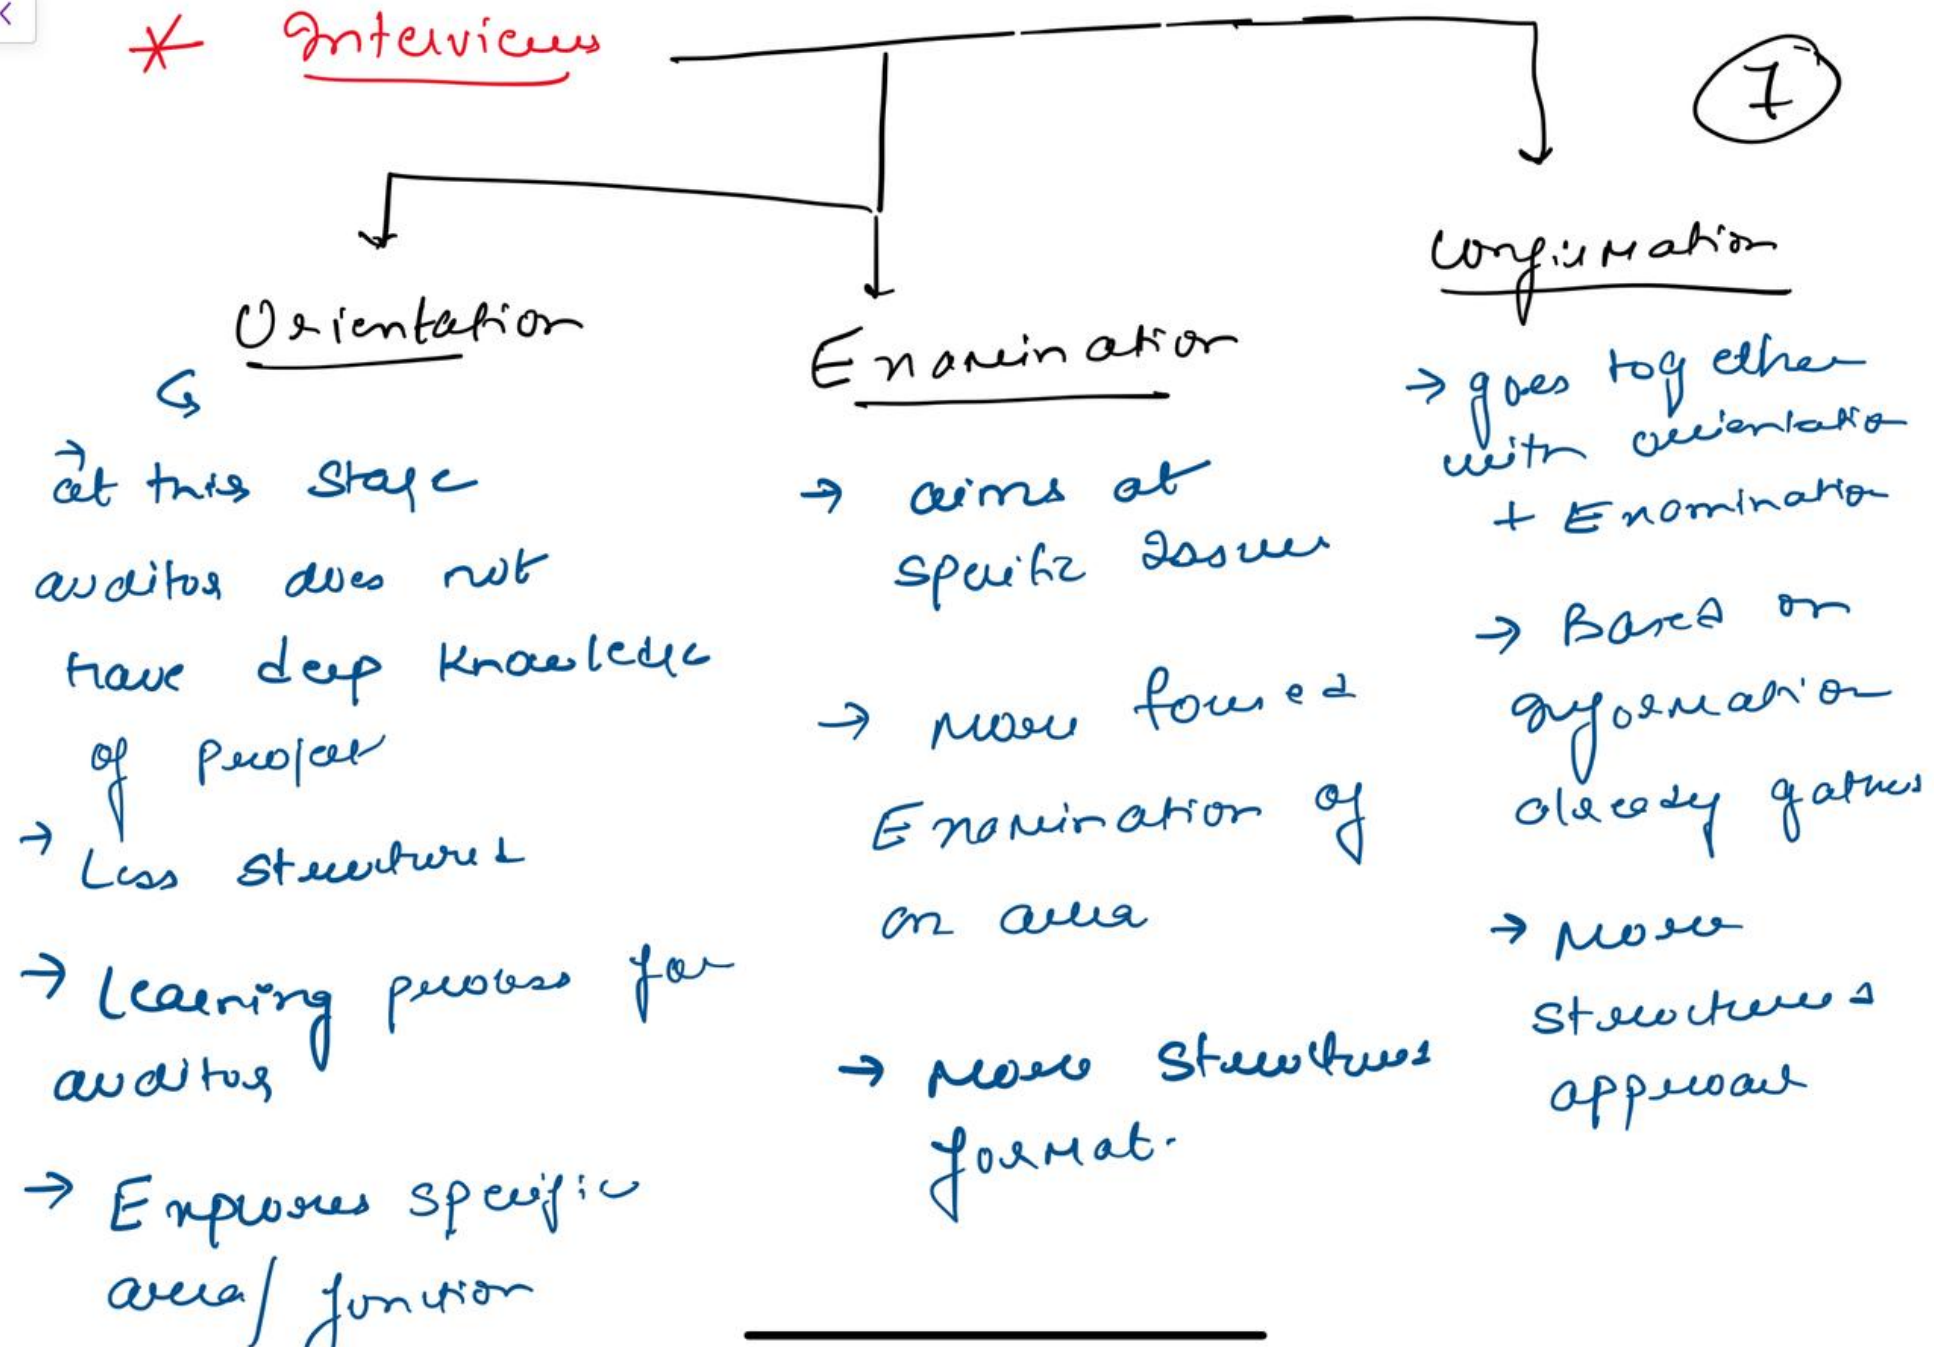 * Interviews
7
Orientation
→ at this stage
auditor does not
have deep knowledge
of project
→ Less structured
→ Learning process for
auditor
→ Explores specific
area/ function
Examination
→ aims at
specific issues
→ more focused
Examination of
an area
→ more structured
format.
Confirmation
→ goes together
with orientation
+ Examination
→ Based on
information
already gathered
→ More
structured
approach